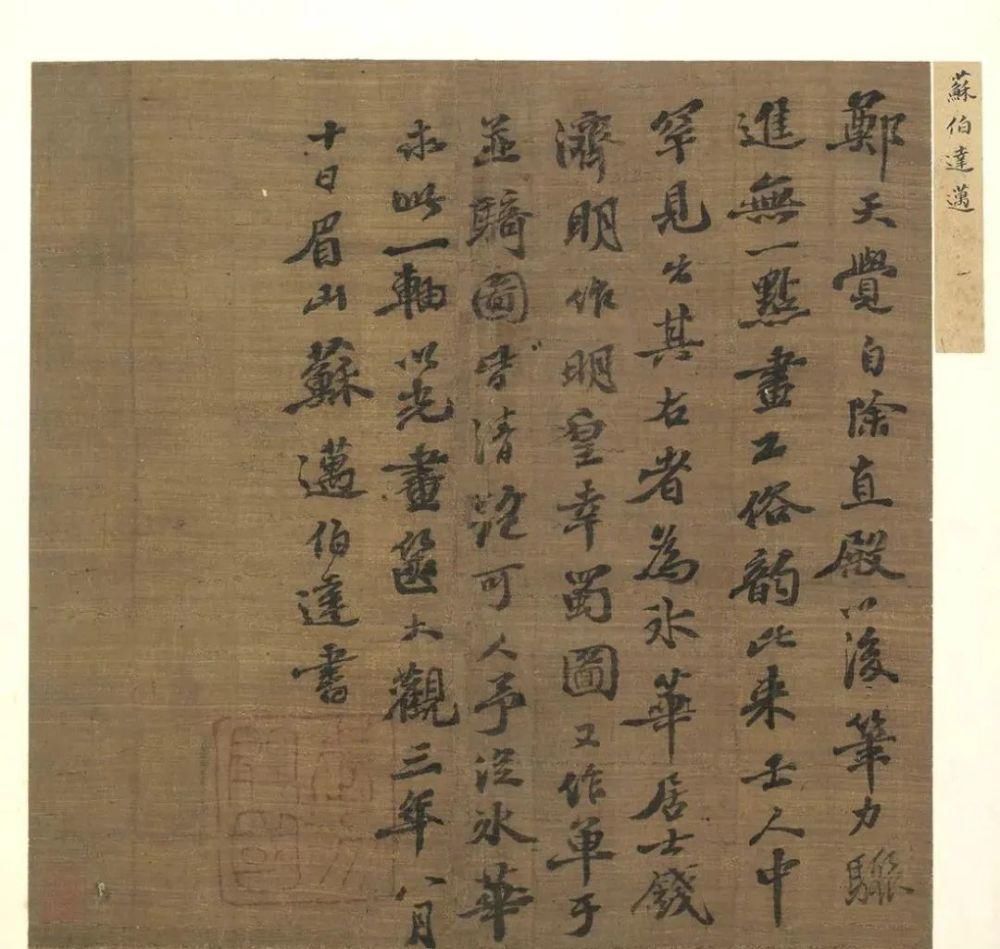 蘇伯達邁
鄭天覺自除直殿以後筆力驟
進無一點畫工俗韵比來士人中
罕見出其右者為冰華居士錢
濟明作明皇幸蜀圖又作單于
並騎圖皆清詭可人予從冰華
求此一軸以光畫箧大觀三年八月
十日眉山蘇邁伯達書